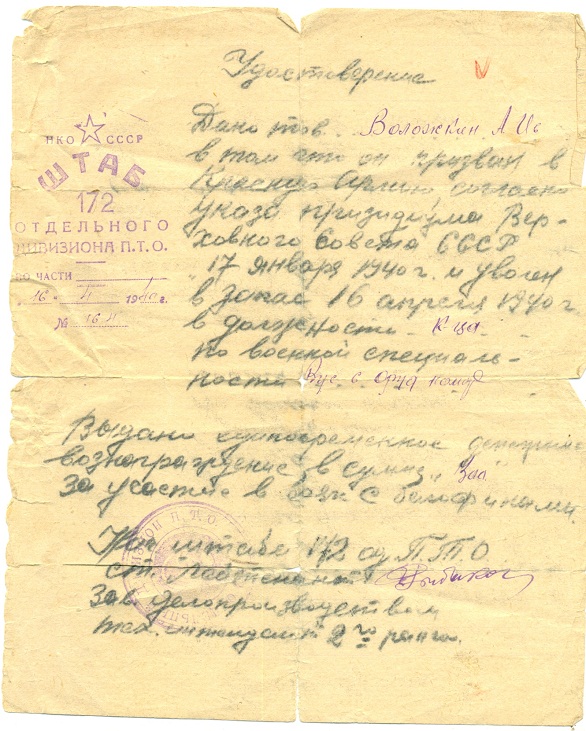 Удостоверение
V
НКО СССР
ШТАБ
172
ОТДЕЛЬНОГО
ДИВИЗИОНА П.Т.О.
ПО ЧАСТИ
16 - 1940 г.
№
Дано тов. Воложкин А Ив
в том что он призван в
Красную Армию согласно
указа призидиума Вер-
ховного Совета СССР
17 января 1940 г. и уволен
в запас 16 апреля 1940 г.
в должности к-ца
по военной специаль-
ности
Выдано единовременное денежное
вознаграждение в сумме 300
За участие в боях с белофинами.
Нач штаба 172 од ПТО
ст. Лейтенант
Зав делопроизводством
тех. интендант 2го ранга.